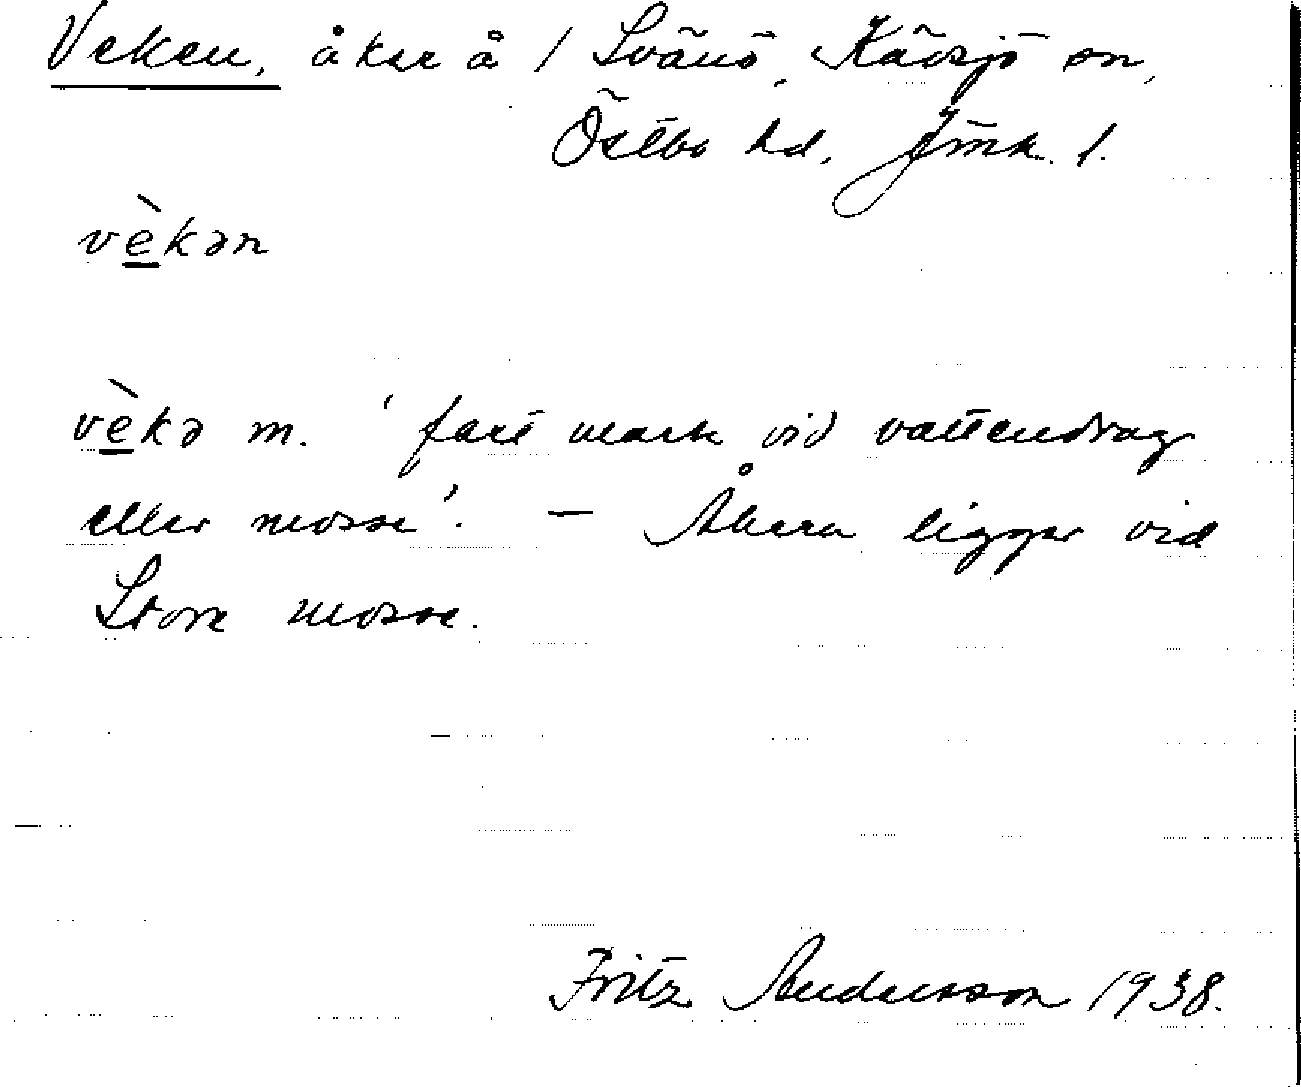 Veken, åker å 1 Svänö, Kävsjö sn,
Östbo hd, Jönk. l.
vèkən
vèkə m. 'fast mark vid vattendrag
eller mosse'. – Åkern ligger vid
Store mosse.
Fritz Andersson 1938.